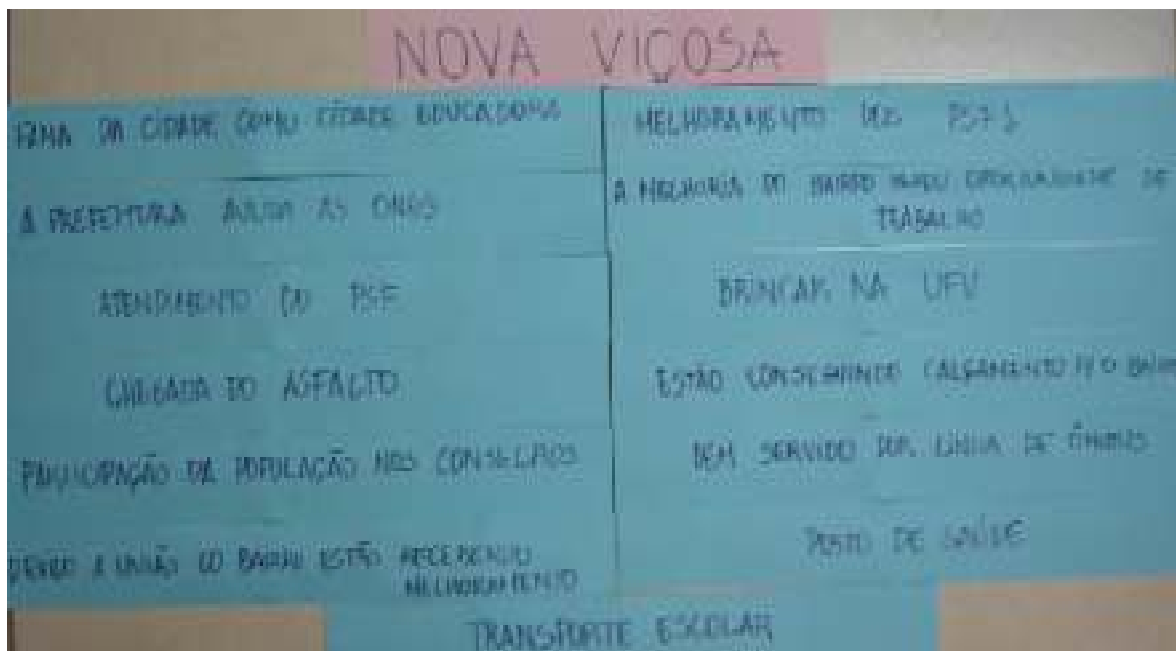 NOVA VIÇOSA
FAMA DA CIDADE COMO CIDADE EDUCADORA
A PREFEITURA AJUDA AS ONGS
ATENDIMENTO DO PSF
CHEGADA DO ASFALTO
PARTICIPAÇÃO DA POPULAÇÃO NOS CONSELHOS
DEVIDO A UNIÃO DO BAIRRO ESTÃO RECEBENDO
MELHORAMENTO
MELHORAMENTO DOS PSF
A MELHORIA DO BAIRRO OPORTUNIDADE DE
TRABALHO
BRINCAR NA UFV
ESTÃO CONSEGUINDO CALÇAMENTO P/ O BAIRRO
BEM SERVIDO POR LINHA DE ÔNIBUS
POSTO DE SAÚDE
TRANSPORTE ESCOLAR